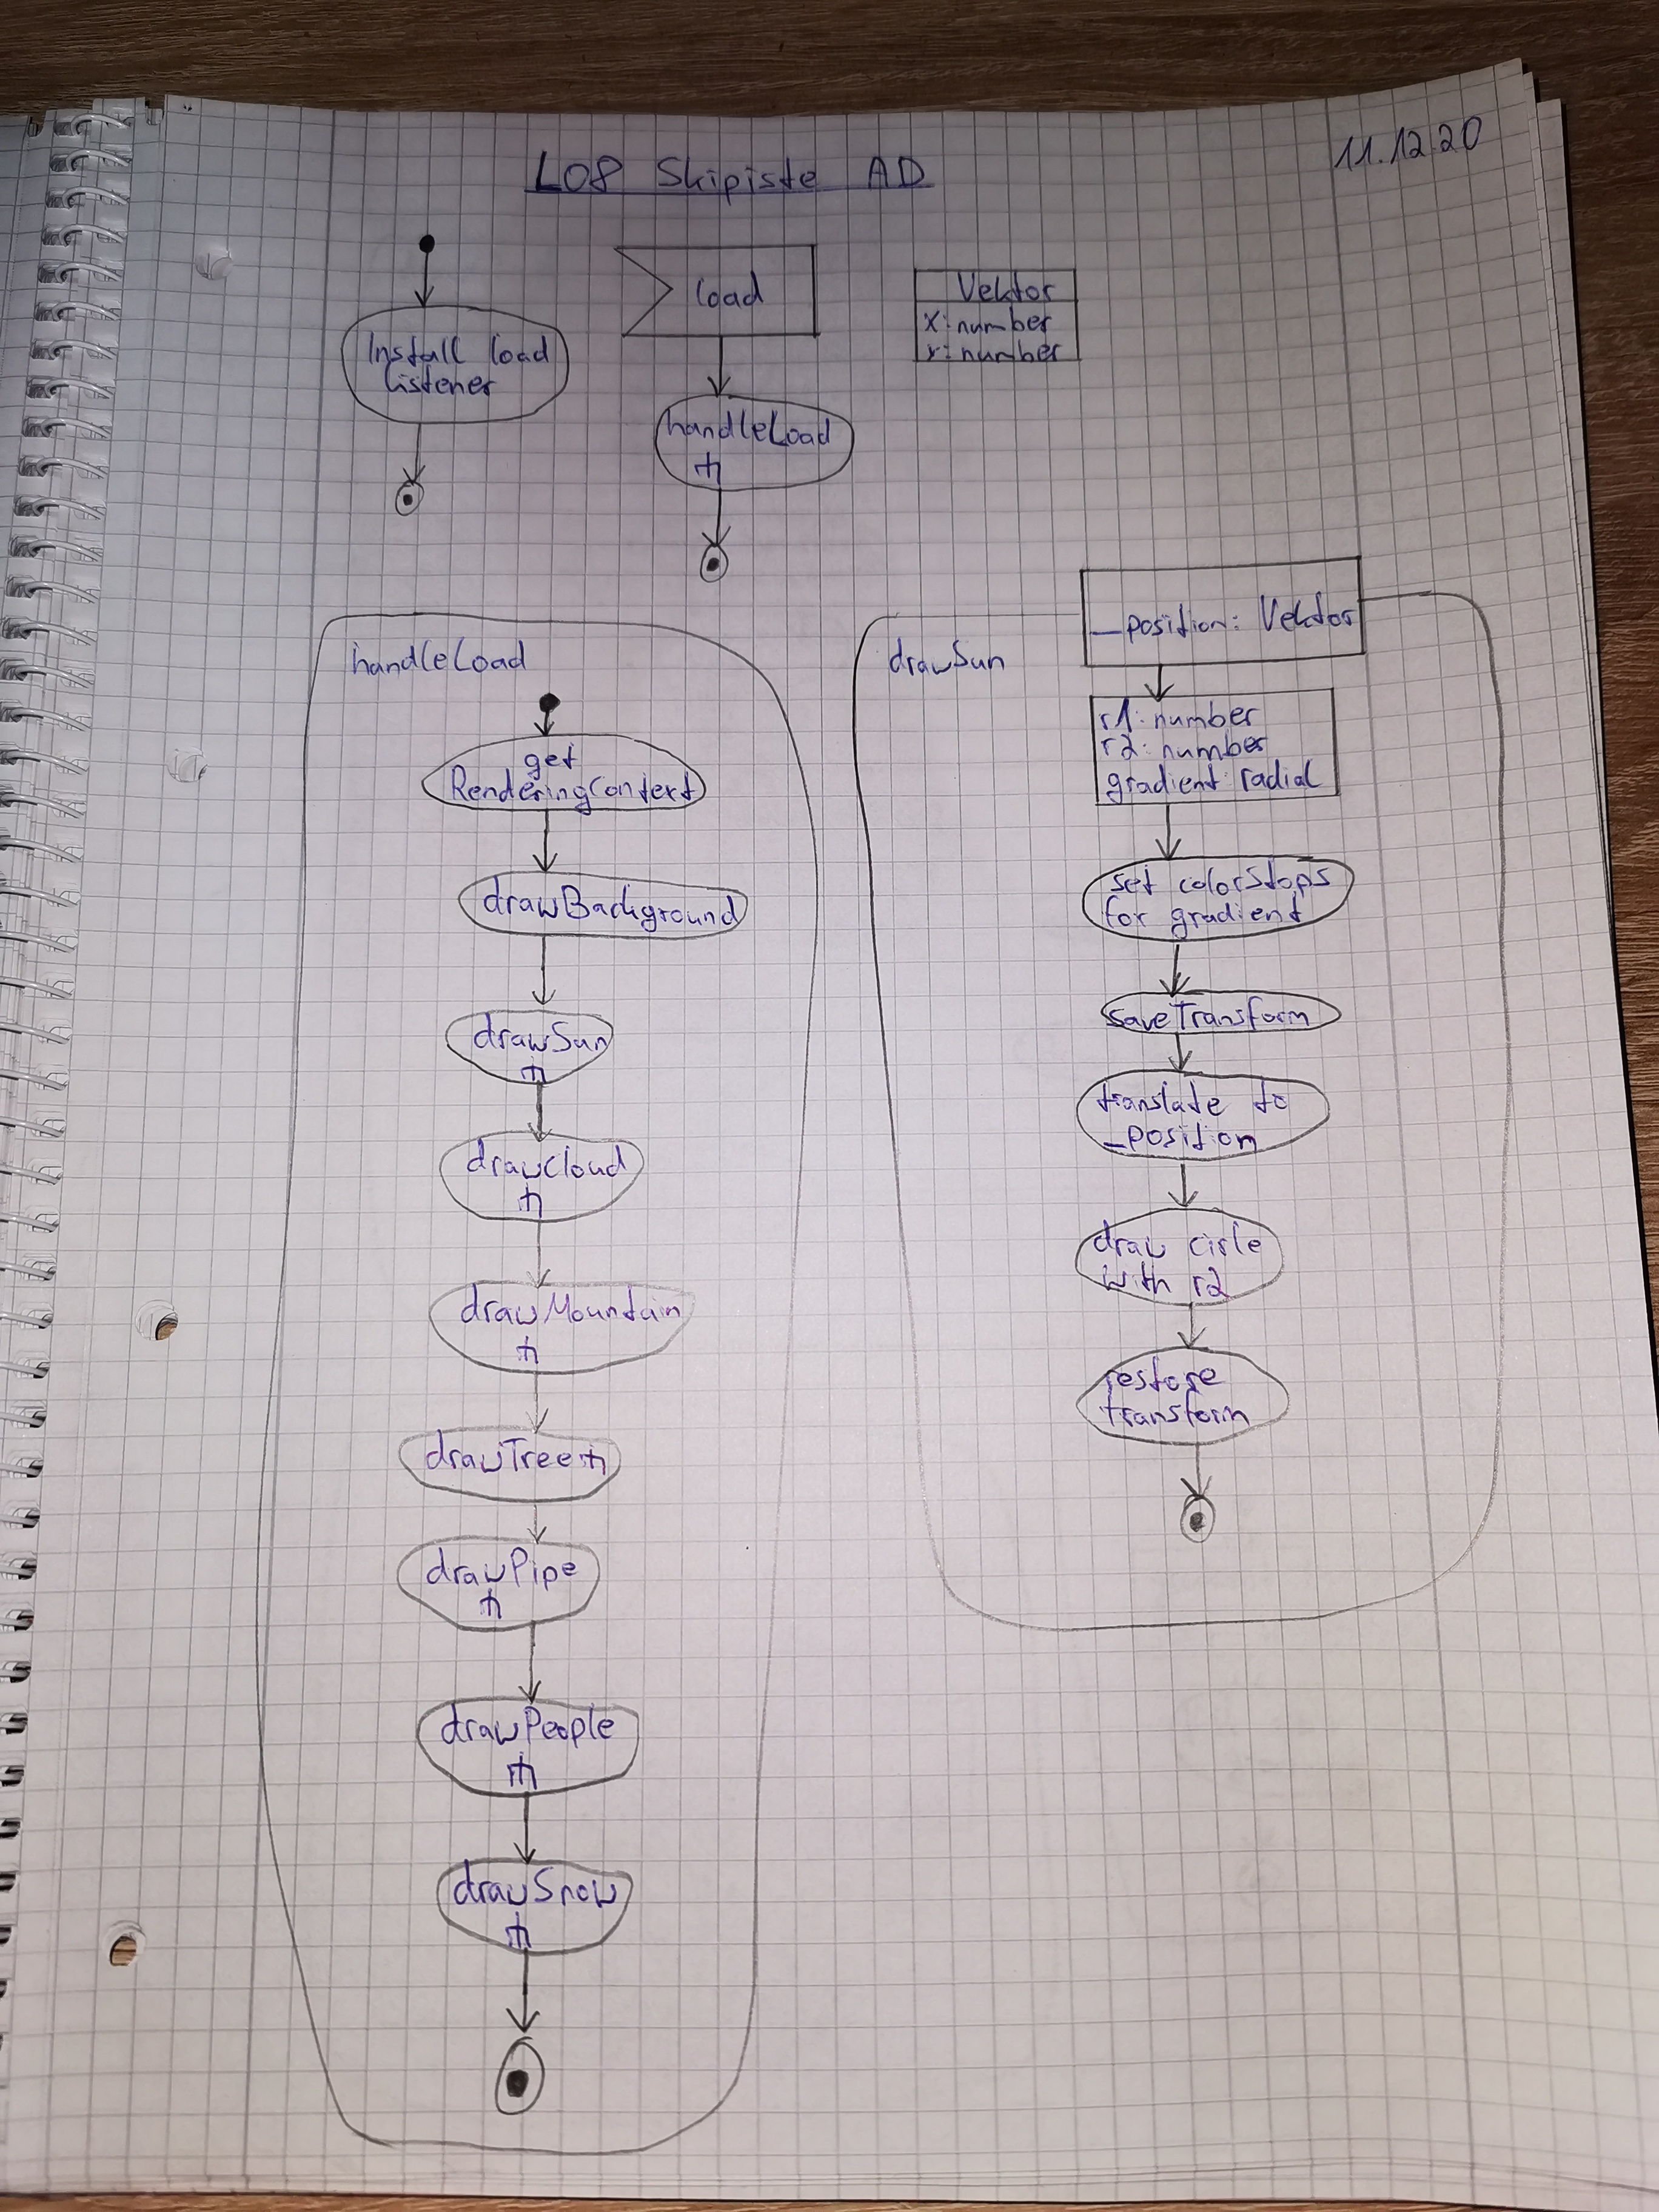 L08 Skipiste AD
11.12.20
Install load
Listener
load
handleLoad
Vektor
x: number
y: number
handleLoad
get
RenderingContext
drawBackground
drawSun
drawCloud
drawMountain
drawTree
drawPipe
drawPeople
drawSnow
_position: Vektor
drawSun
r1: number
r2: number
gradient: radial
set colorStops
for gradient
saveTransform
translate to
_position
draw cirle
with r2
restore
transform